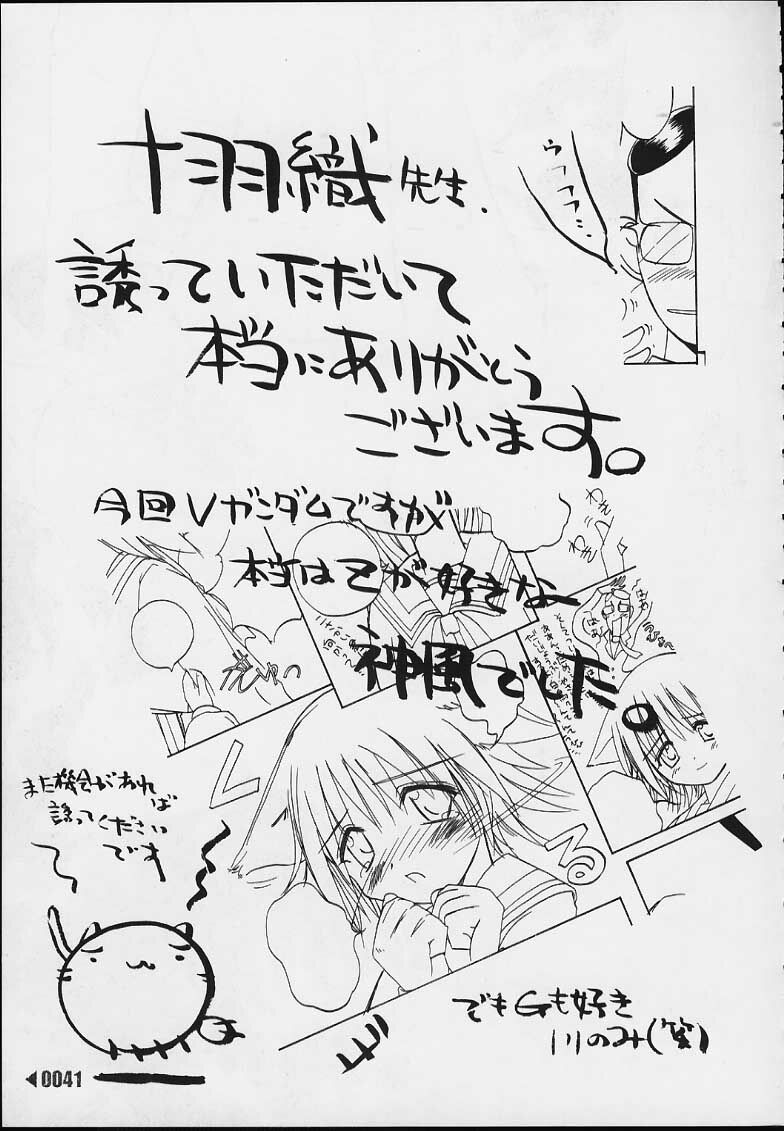 十羽織先生、
誘っていただいて
本当にありがとう
ございます。
ウフフフ…
今回Vガンダムですが
本当はZが好きな
神風でした。
わき
わき
ぎゅっ
また機会があれば
誘ってください
です
でもGも好き
川のみ(笑)
0041